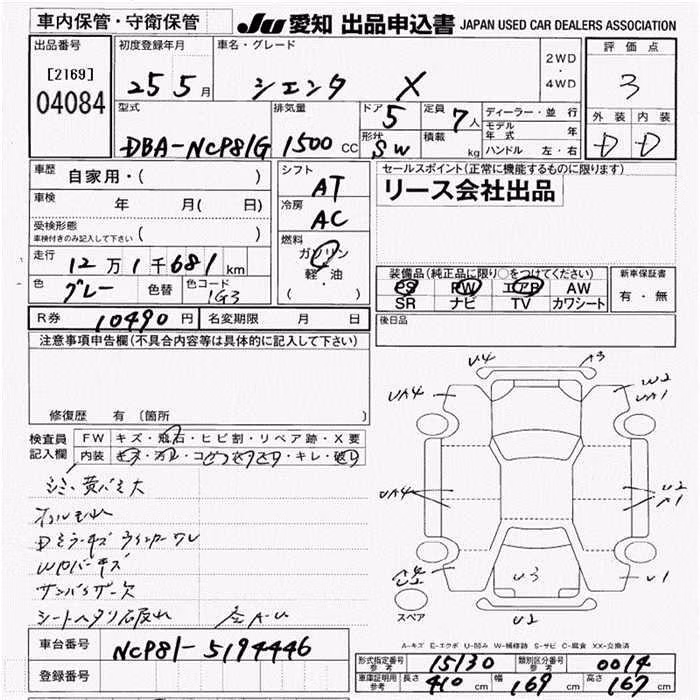 車内保管・守衛保管
JU 愛知 出品申込書 JAPAN USED CAR DEALERS ASSOCIATION
出品番号
[2169]
04084
初度登録年月
25 5月
車名・グレード
シエンタ X
2WD
・
4WD
評価点
3
外装 内装
D D
型式
DBA-NCP81G
排気量
1500 CC
ドア 5
定員 7人
形状 SW
積載 kg
ディーラー・並行
モデル年式 年
ハンドル 左・右
車歴 自家用・( )
車検 年 月( 日)
受検形態
車検付きのみ記入して下さい ( )
走行 12万1千681km
色 グレー 色替 色コード 1G3
シフト AT
冷房 AC
燃料
ガソリン
軽・油
( )
セールスポイント(正常に機能するものに限ります)
リース会社出品
装備品(純正品に限り○をつけてください)
PS PW エアB AW
SR ナビ TV カワシート
新車保証書
有・無
後日品
R券 10490円 名変期限 月 日
注意事項申告欄(不具合内容等は具体的に記入して下さい)
修復歴 有 〔箇所 〕
検査員
記入欄
FW キズ・飛石・ヒビ割・リペア跡・X要
内装 キズ・
・キレ・破レ
オイルモレ
シート
U4 A3
UA4 W2
UA1
UA4 U2
A1
A4
U2 U3 U1
U2
スペア
A-キズ E-エクボ U-凹み W-補修跡 S-サビ C-腐食 XX-交換済
車台番号 NCP81-5194446
登録番号
形式指定番号
参考 15130
類別区分番号
参考 0014
車庫証明用
参考 長さ 410cm 幅 169cm 高さ 167cm